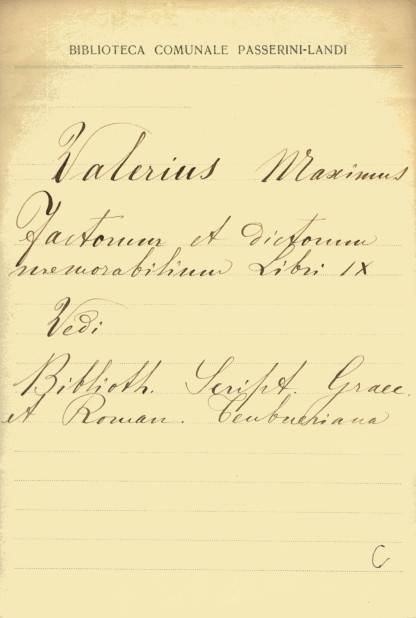 BIBLIOTECA COMUNALE PASSERINI-LANDI
Valerius Maximus
Factorum et dictorum
memorabilium Libri IX
Vedi
Biblioth. Script. Graec.
et Roman. Teubneriana
C